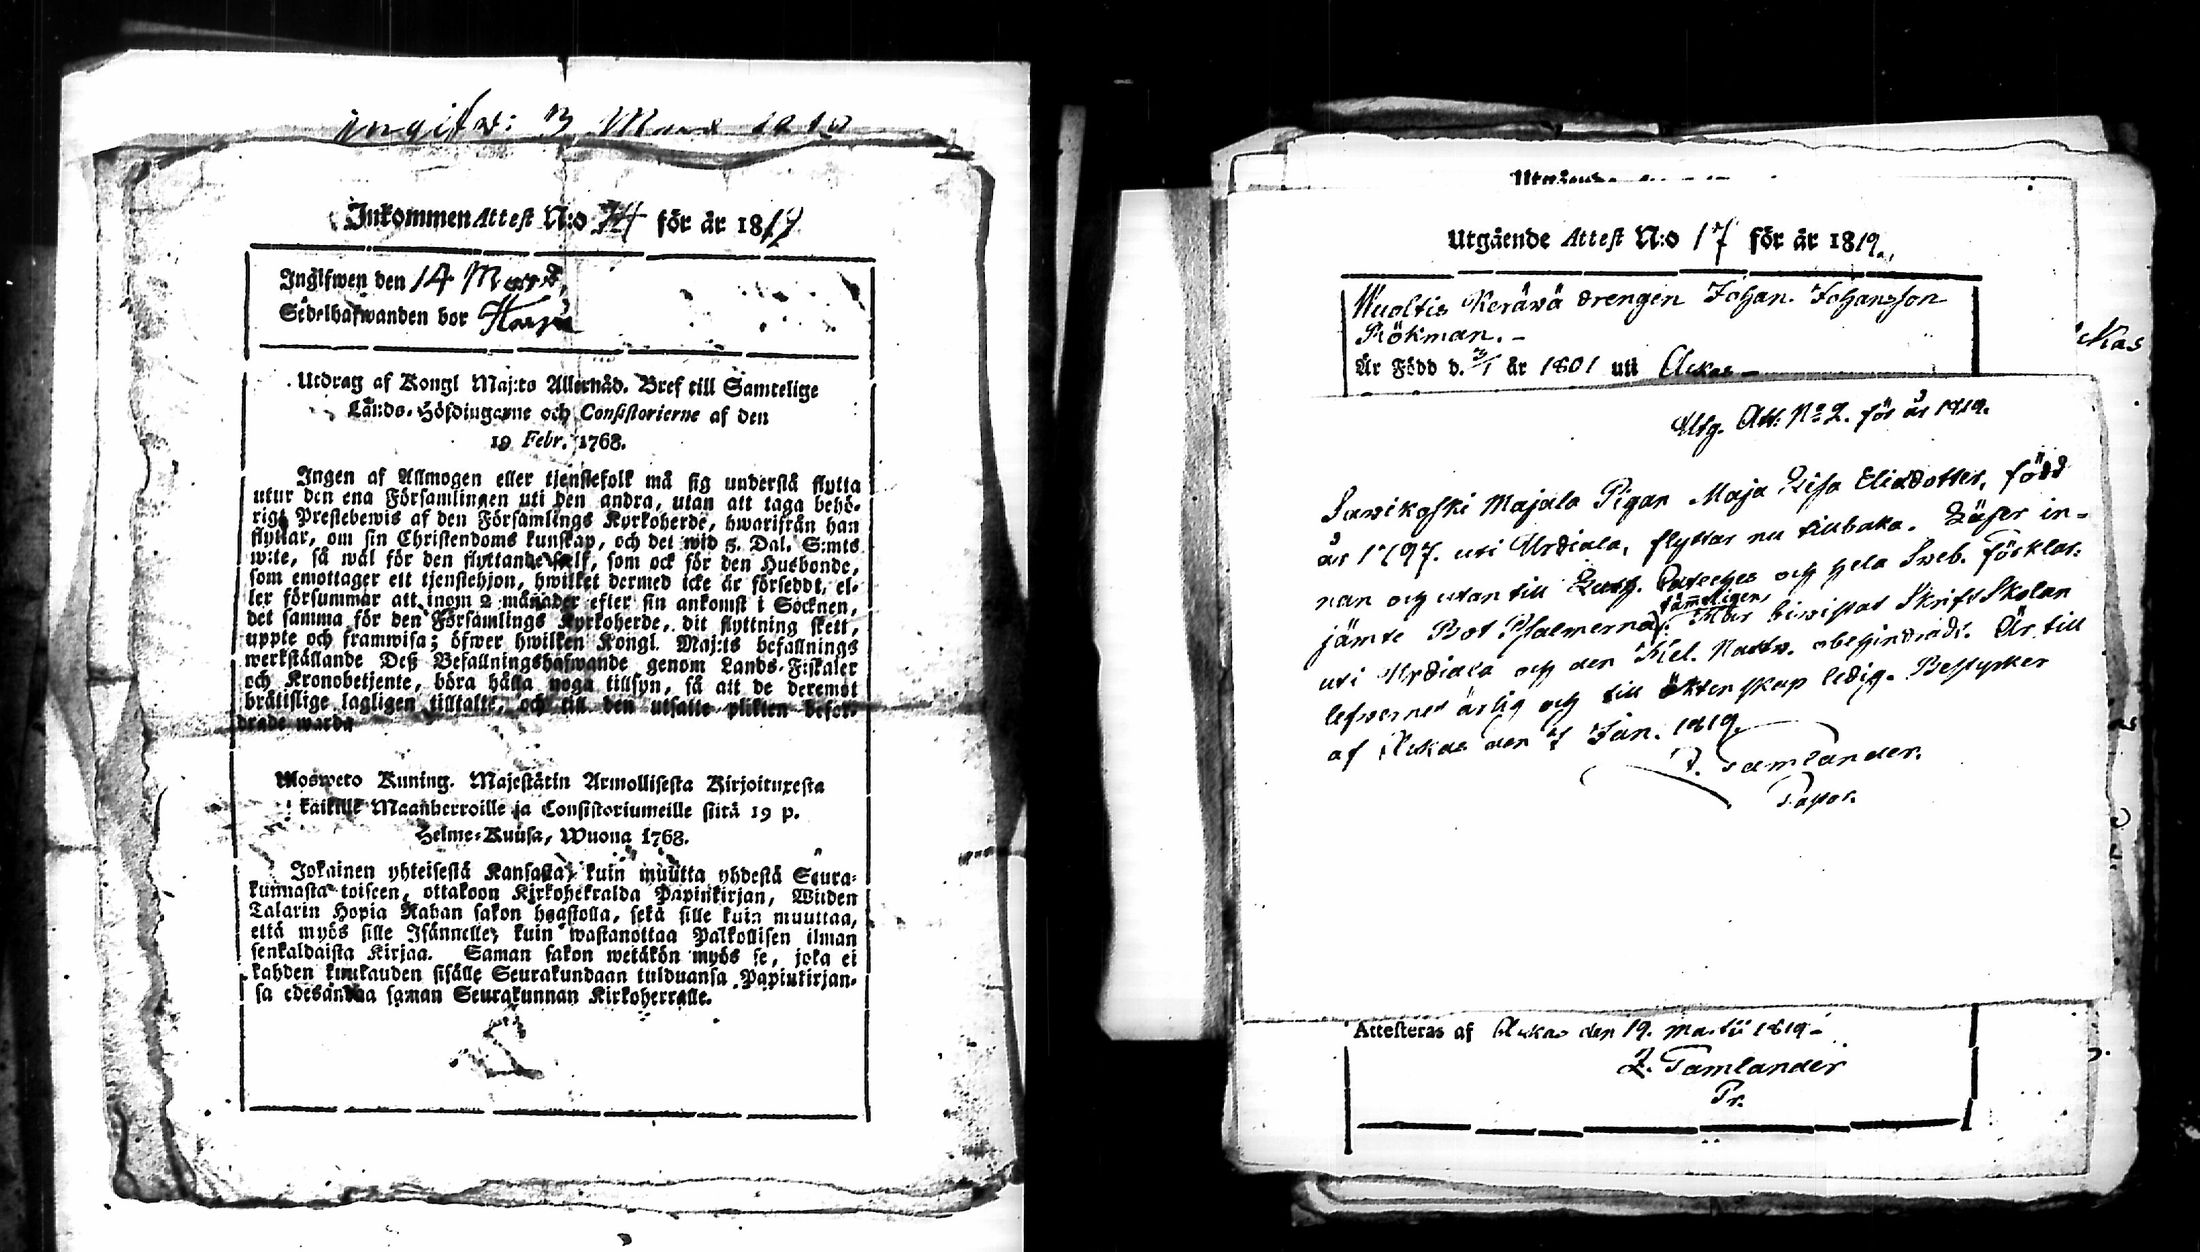 ingifw: 3 Mars 1819
Inkommen Attest N:o 34 för år 1819
Ingifwen den 14 Mars
Sedelhafwanden bor Harju
Utdrag af Kongl Maj:ts Allernåd. Bref till Samtelige
Lands-Höfdingarne och Consistorierne af den
19 Febr. 1768.
Ingen af Allmogen eller tjenstefolk må sig understå flytta
utur den ena Församlingen uti den andra, utan att taga behö-
rigt Prestebewis af den Församlings Kyrkoherde, hwarifrån han
flyttar, om sin Christendoms kunskap, och det wid 5. Dal. S:mts
wite, så wäl för den flyttande sjelf, som ock för den Husbonde,
som emottager ett tjenstehjon, hwilket dermed icke är försedt, el-
ler försummar att inom 2 månader efter sin ankomst i Socknen,
det samma för den Församlings Kyrkoherde, dit flyttning skett,
uppte och framwisa; öfwer hwilken Kongl. Maj:ts befallnings
werkställande Deß Befallningshafwande genom Lands-Fiskaler
och Kronobetjente, böra hålla noga tillsyn, så att de deremot
brätislige lagligen tilltalte, och till den utsatte plikten befor-
drade warda
Mosweto Kuning. Majestätin Armollisesta Kirjoituxesta
kaikille Maanherroille ja Consistoriumeille siitä 19 p.
Helme-Kuusa, Wuona 1768.
Jokainen yhteisestä Kansasta, kuin muutta yhdestä Seura-
kunnasta toiseen, ottakoon Kirkoherralda Papinkirjan, Wiiden
Talarin Hopia Rahan sakon haastolla, sekä sille kuin muuttaa,
että myös sille Isännelle, kuin wastanottaa Palkollisen ilman
senkaldaista Kirjaa. Saman sakon wetäkön myös se, joka ei
kahden kuukauden sisälle Seurakundaan tulduansa Papinkirjan-
sa edesandaa saman Seurakunnan Kirkoherralle.
Utgående Attest N:o 17 för år 1819.
Wuoltis Keräwä drengen Johan Johansson
Rökman. –
Är Född d. 3/1 år 1801 uti Ackas –
ckas
Utg. Att: N:o 2. för år 1819.
Sawikoski Majala Pigan Maja Lisa Eliædotter, född
år 1797. uti Urdiala, flyttar nu tillbaka. Läser in-
nan och utan till Luth. Cateches och hela Sweb. förklar:
jämte Bot Psalmerna, Har biwistat SkriftSkolan
sämmeligen
uti Urdiala och den Hel. Nattv. obehindradt. Är till
lefwernet ärlig och till äktenskap ledig. Bestyrker
af Ackas den 7 Jan. 1819.
J. Tamlander.
Pastor.
Attesteras af Ackas den 19. Martii 1819 –
J. Tamlander
Pr.